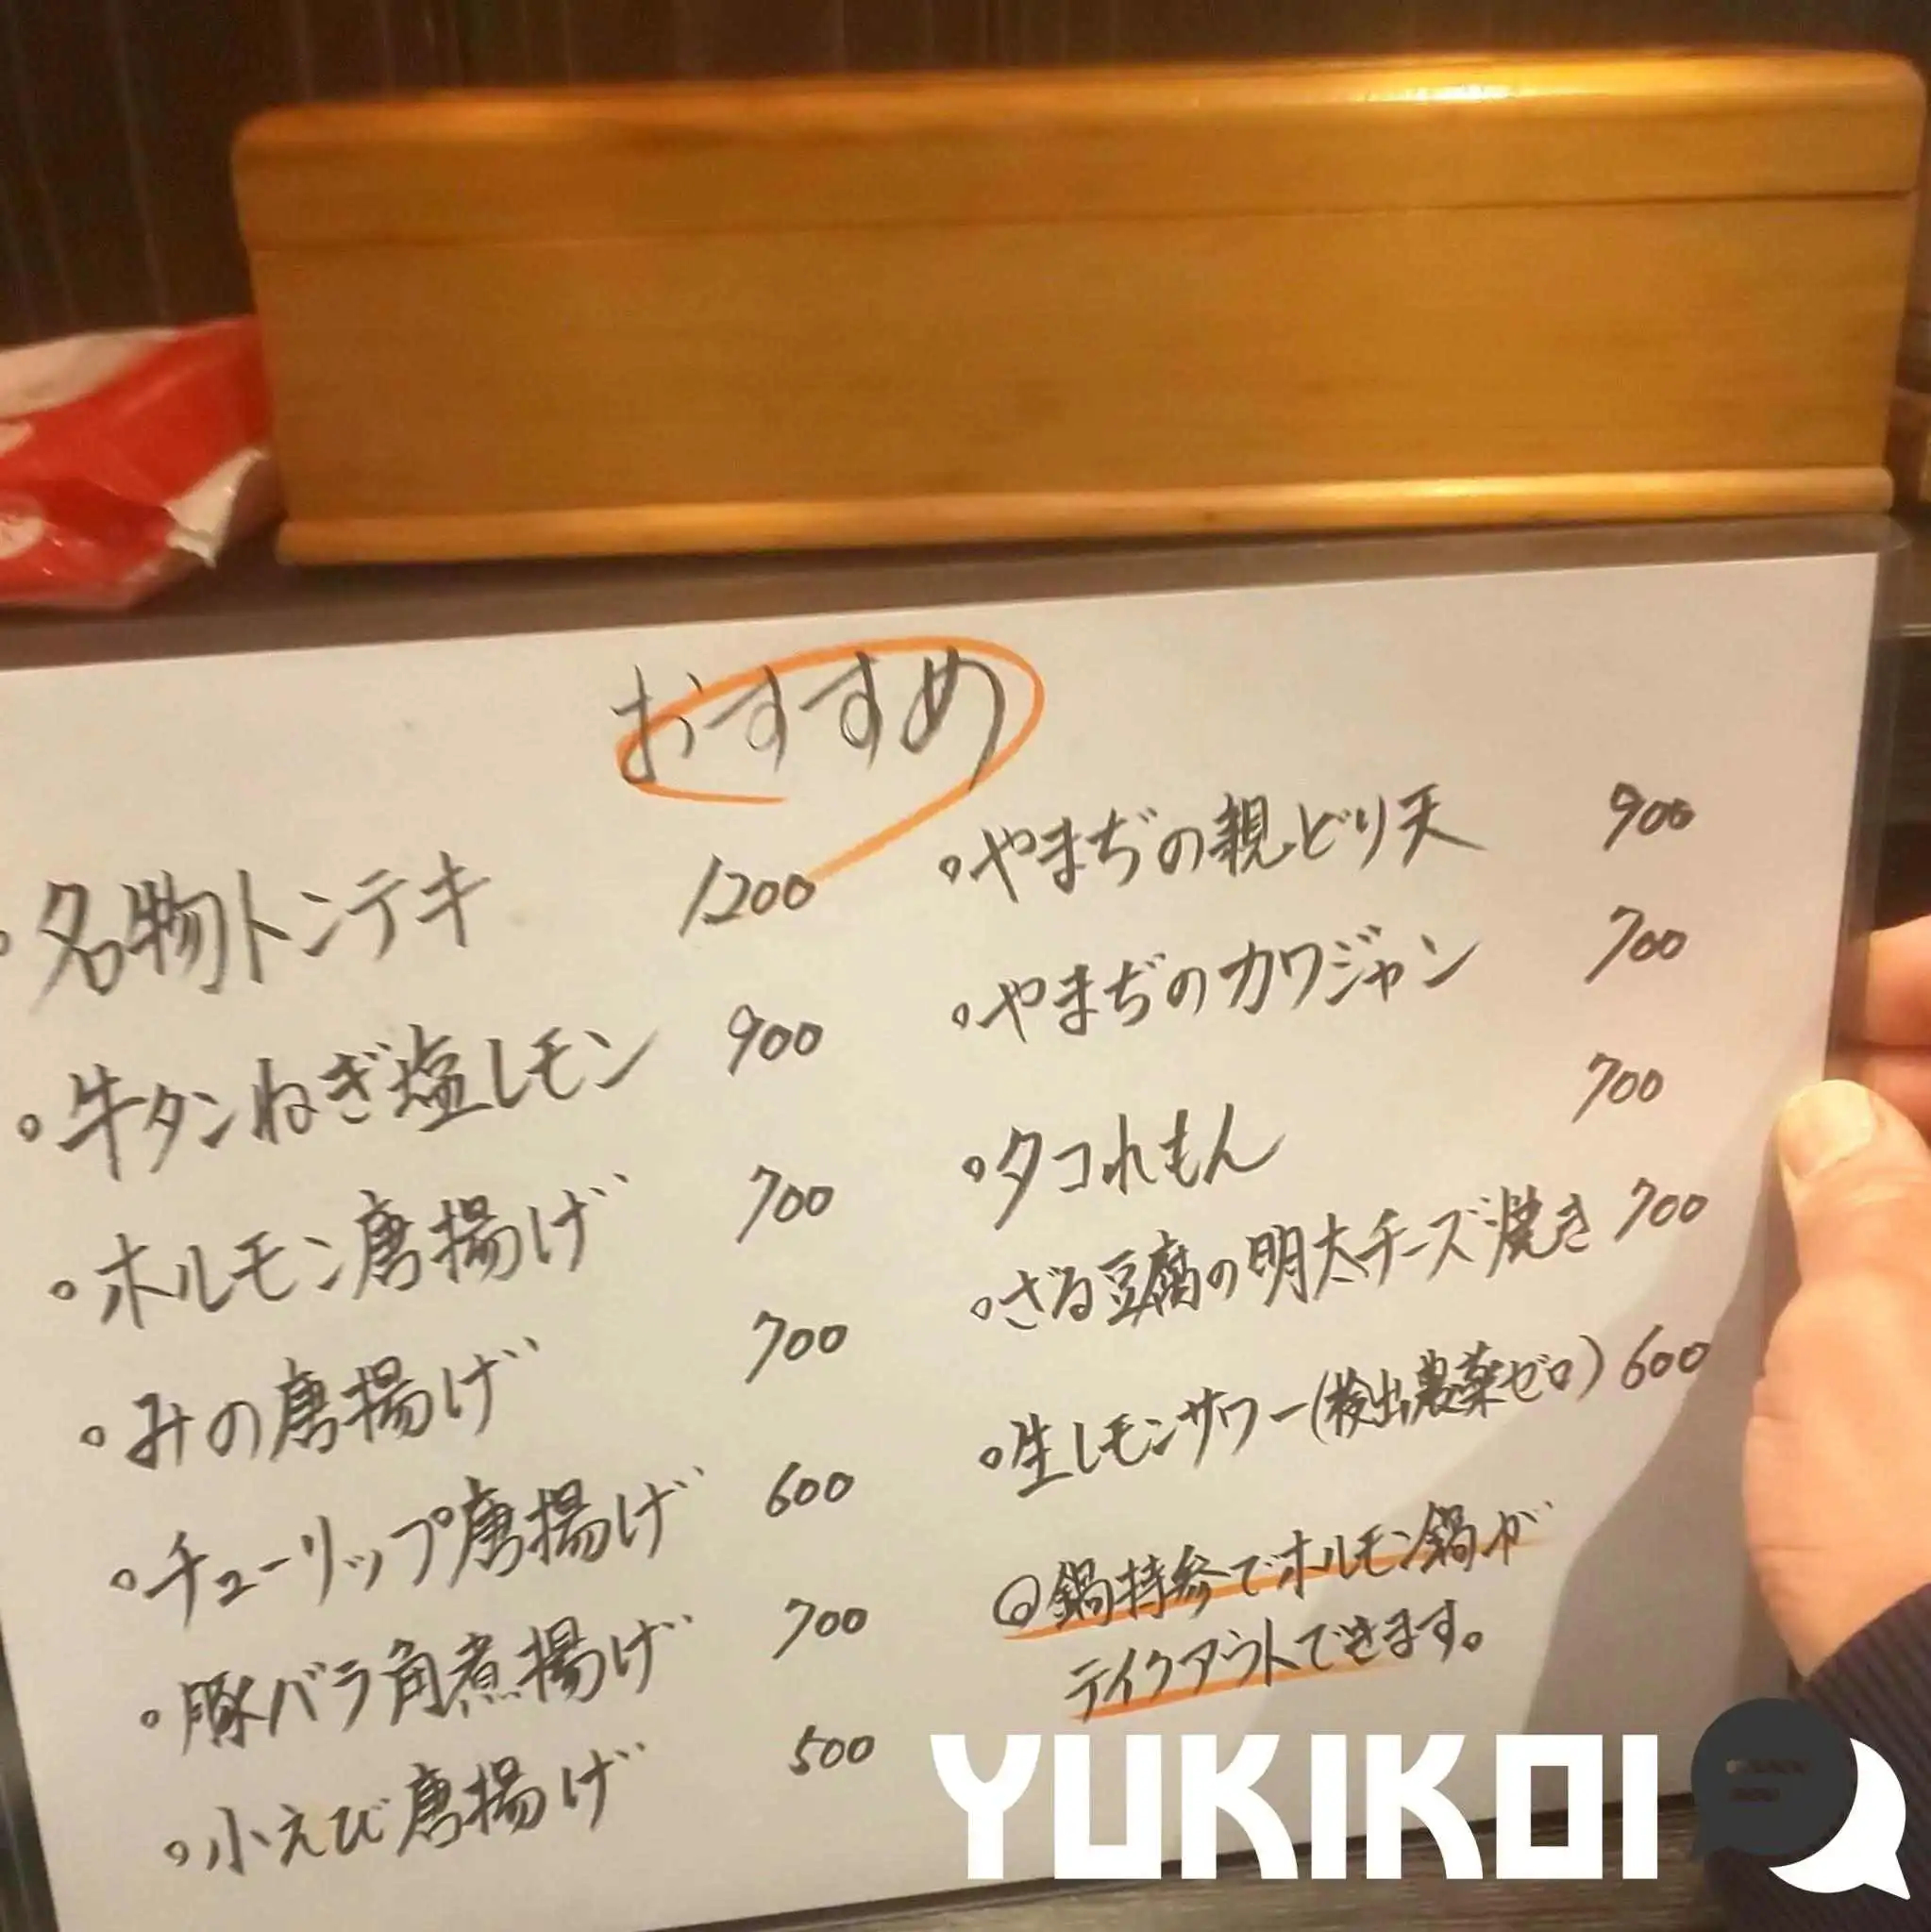 おすすめ
。名物トンテキ 1200
。牛タンねぎ塩レモン 900
。ホルモン唐揚げ 700
。みの唐揚げ 700
。チューリップ唐揚げ 600
。豚バラ角煮揚げ 700
。小えび唐揚げ 500
。やまぢの親どり天 900
。やまぢのカワジャン 700
。タコれもん 700
。ざる豆腐の明太チーズ焼き 700
。生レモンサワー(検出農薬ゼロ) 600
◎鍋持参でホルモン鍋が
テイクアウトできます。
YUKIKOI